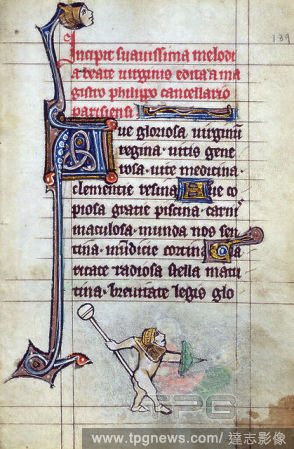 139
Incipit suavissima melodi
a beate virginis edita a ma
gistro philippo cancellario
parisiensi
Ave gloriosa virginum
regina vitis gene
rosa vite medicina
clementie resina Ave co
piosa gratie piscina carnis
maculosa munda nos sen
tina mundicie cortina Cla
ritate radiosa stella matu
tina brevitate legis glo
TPG
www.tpgnews.com/ 達志影像